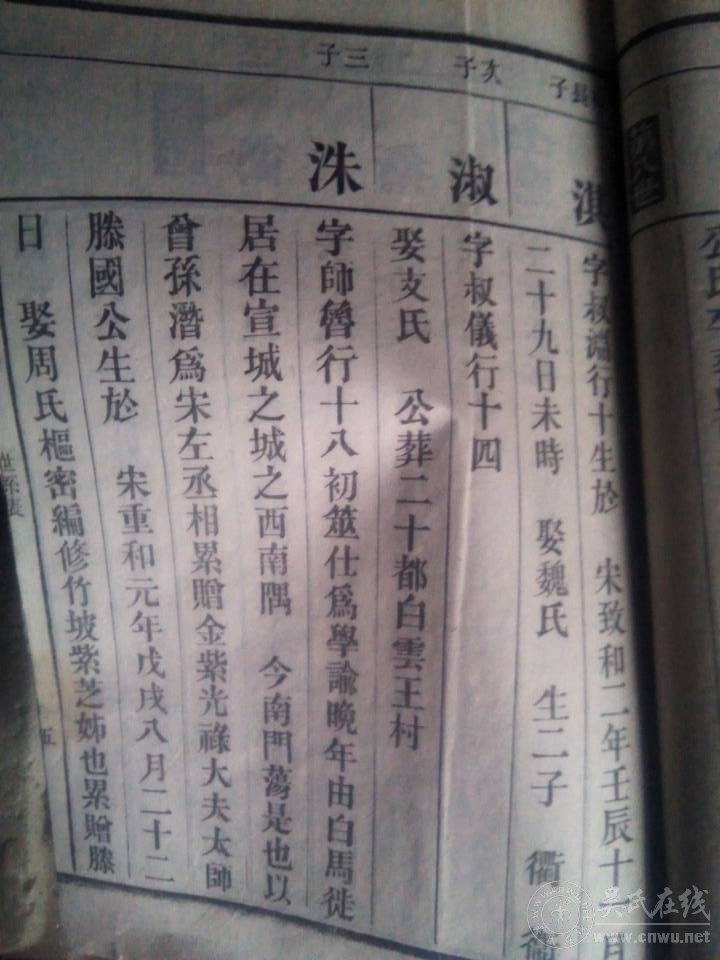 第八世
長子
淇
字叔淵行十生於 宋致和二年壬辰十一月
二十九日未時 娶魏氏 生二子 衢
次子
淑
字叔儀行十四
娶支氏 公葬二十都白雲王村
三子
洙
字師魯行十八初筮仕爲學諭晚年由白馬徙
居在宣城之城之西南隅 今南門蕩是也以
曾孫潛爲宋左丞相累贈金紫光祿大夫太師
滕國公生於 宋重和元年戊戌八月二十二
日 娶周氏樞密編修竹坡紫芝姊也累贈滕
世系表
五
吴氏在线
www.cnwu.net